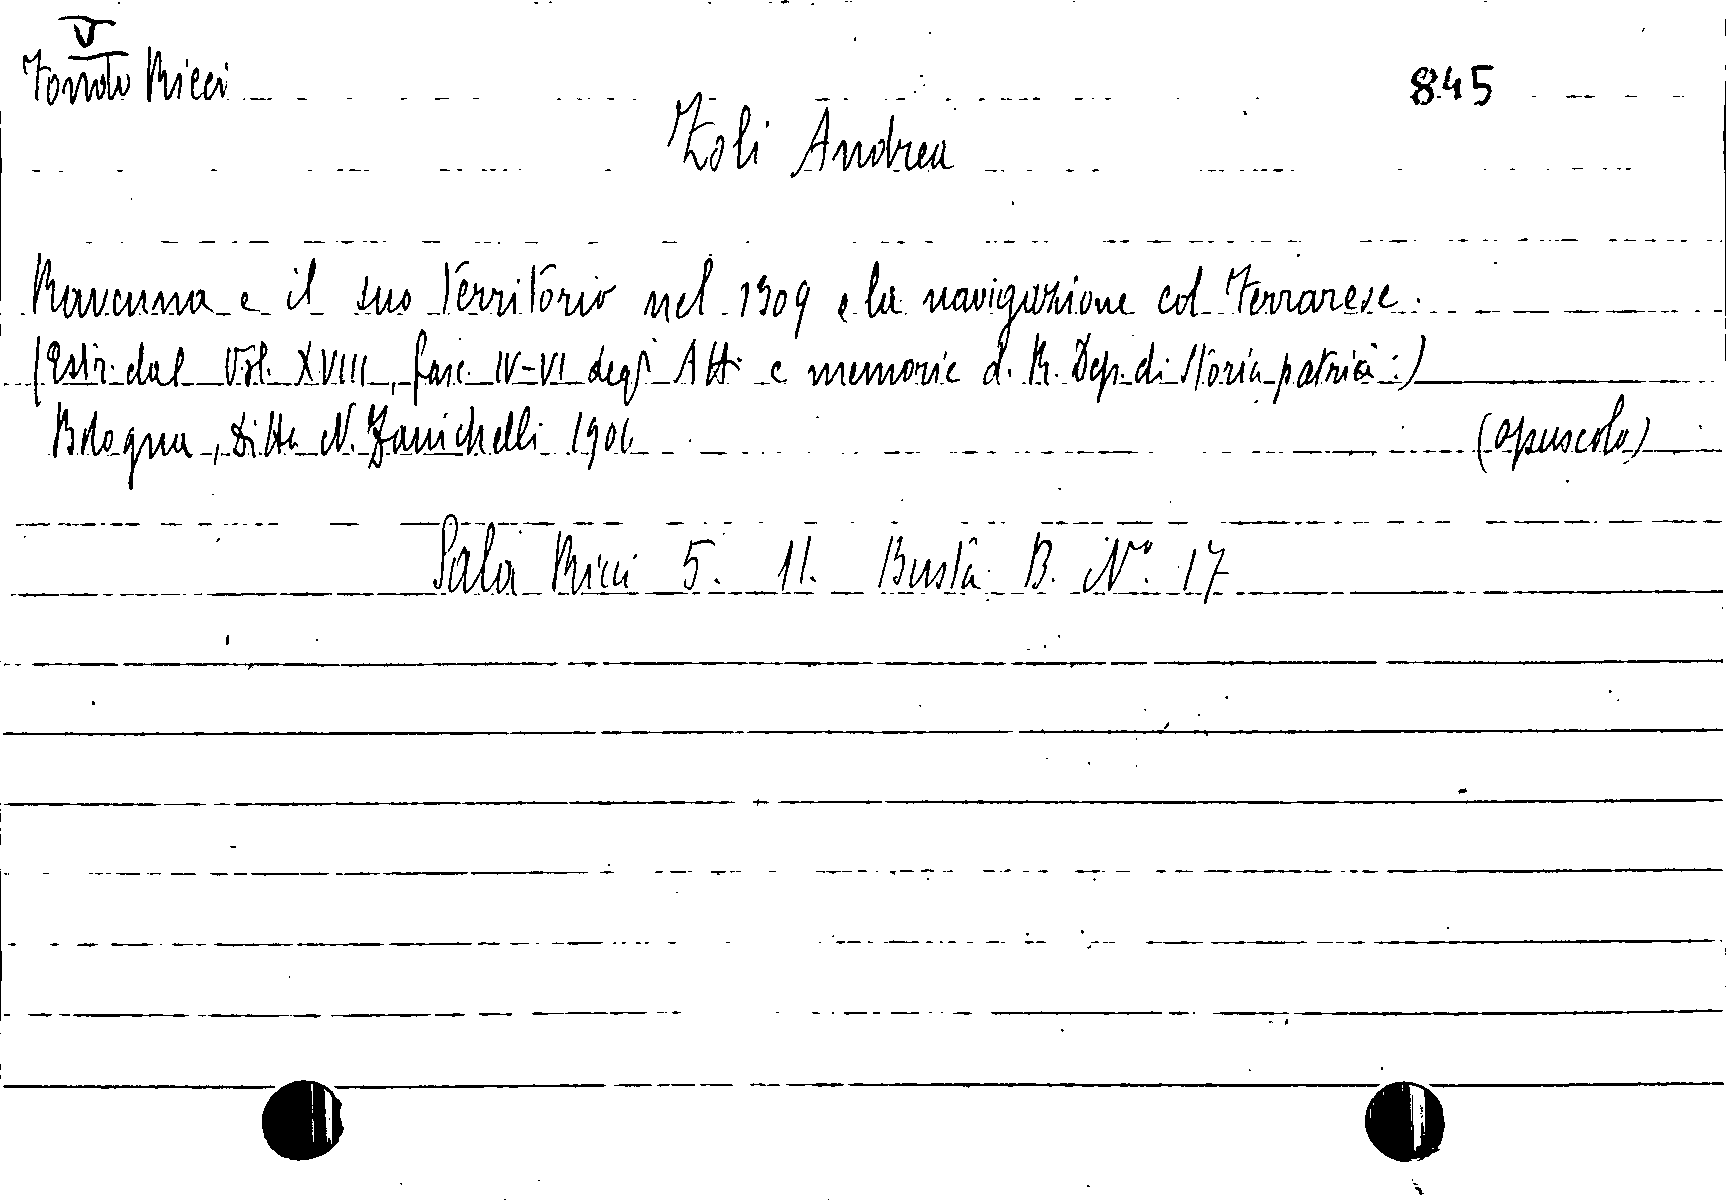 V
Fondo Ricci
845
Zoli Andrea
Ravenna e il suo territorio nel 1309 e la navigazione col Ferrarese.
(Estr. dal Vol. XVIII, fasc. IV-VI degli Atti e memorie d. R. Dep. di Storia patria:)
Bologna, Ditta N. Zanichelli 1906
(opuscolo)
Sala Ricci 5. 11. Busta B. N° 17